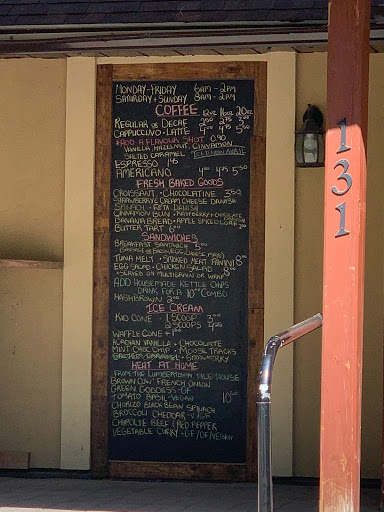 MONDAY-FRIDAY 6AM-2PM
SATURDAY+SUNDAY 8AM-2PM
COFFEE 12oz 16oz 20oz
REGULAR OR DECAF 2.75
CAPPUCCINO·LATTE 4.00 4.75 5.50
*ADD A FLAVOUR SHOT 0.90
VANILLA, HAZELNUT, CINNAMON
SALTED CARAMEL
ESPRESSO
AMERICANO 4.00 4.75 5.50
FRESH BAKED GOODS
CROISSANT·CHOCOLATINE 3.50
STRAWBERRY CREAM CHEESE DANISH
SPINACH + FETA DANISH
CINNAMON BUN·RASPBERRY+CHOCOLATE
BANANA BREAD·APPLE SPICED LOAF
BUTTER TART 6.00
SANDWICHES
BREAKFAST SANDWICH 5.00
TUNA MELT·SMOKED MEAT PANINI 8.00
EGG SALAD·CHICKEN SALAD 8.00
*SERVED ON MULTIGRAIN OR WRAP
ADD HOUSEMADE KETTLE CHIPS
DRINK FOR A 10.00 COMBO
HASHBROWN 2.00
ICE CREAM
KID CONE - 1 SCOOP
2 SCOOPS
WAFFLE CONE +1.00
ACADIAN VANILLA·CHOCOLATE
MINT CHOC CHIP·MOOSE TRACKS
SALTED CARAMEL·STRAWBERRY
HEAT AT HOME
FROM THE LUMBERTOWN ALE HOUSE
BROWN COW FRENCH ONION
GREEN GODDESS-GF
TOMATO BASIL-VEGAN
CHORIZO BLACK BEAN SPINACH
BROCCOLI CHEDDAR-V/GF
CHIPOTLE BEEF + RED PEPPER
VEGETABLE CURRY-GF/DF/VEGAN
131